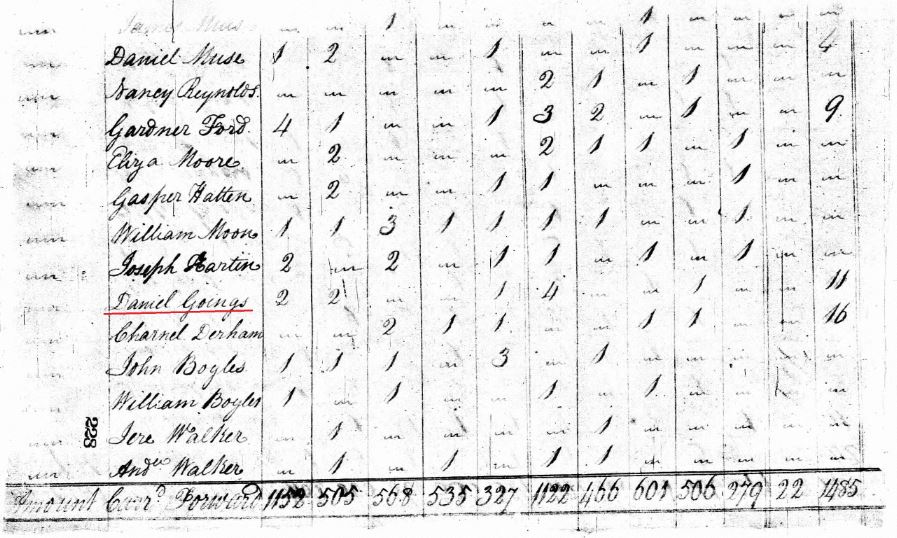 James Muse " " 1 " " " " 1 " " " "
Daniel Muse 1 2 " " 1 " " 1 " " " 4
Nancy Reynolds. " " " " " 2 1 " 1 " " "
Gardner Ford 4 1 " " 1 3 2 " 1 " " 9
Eliza Moore " 2 " " " 2 1 1 " 1 " "
Gasper Hatten " 2 " " 1 1 " " " 1 " "
William Moon 1 1 3 1 1 1 1 " " 1 " "
Joseph Harten 2 " 2 " 1 1 " 1 " 1 " "
Daniel Goings 2 2 " " 1 4 " " 1 " " 11
Charnel Derham " " 2 1 1 " " 1 1 " " 16
John Boyles 1 1 1 " 3 " 1 " " " " "
William Boyles 1 " 1 " " 1 " 1 " " " "
228
Jere Walker " 1 " " " " 1 " " " " "
Andw Walker " 1 " 1 " 1 1 " " " " "
Amount Carrd. Forward 1152 505 568 535 327 1122 466 601 506 279 22 1485